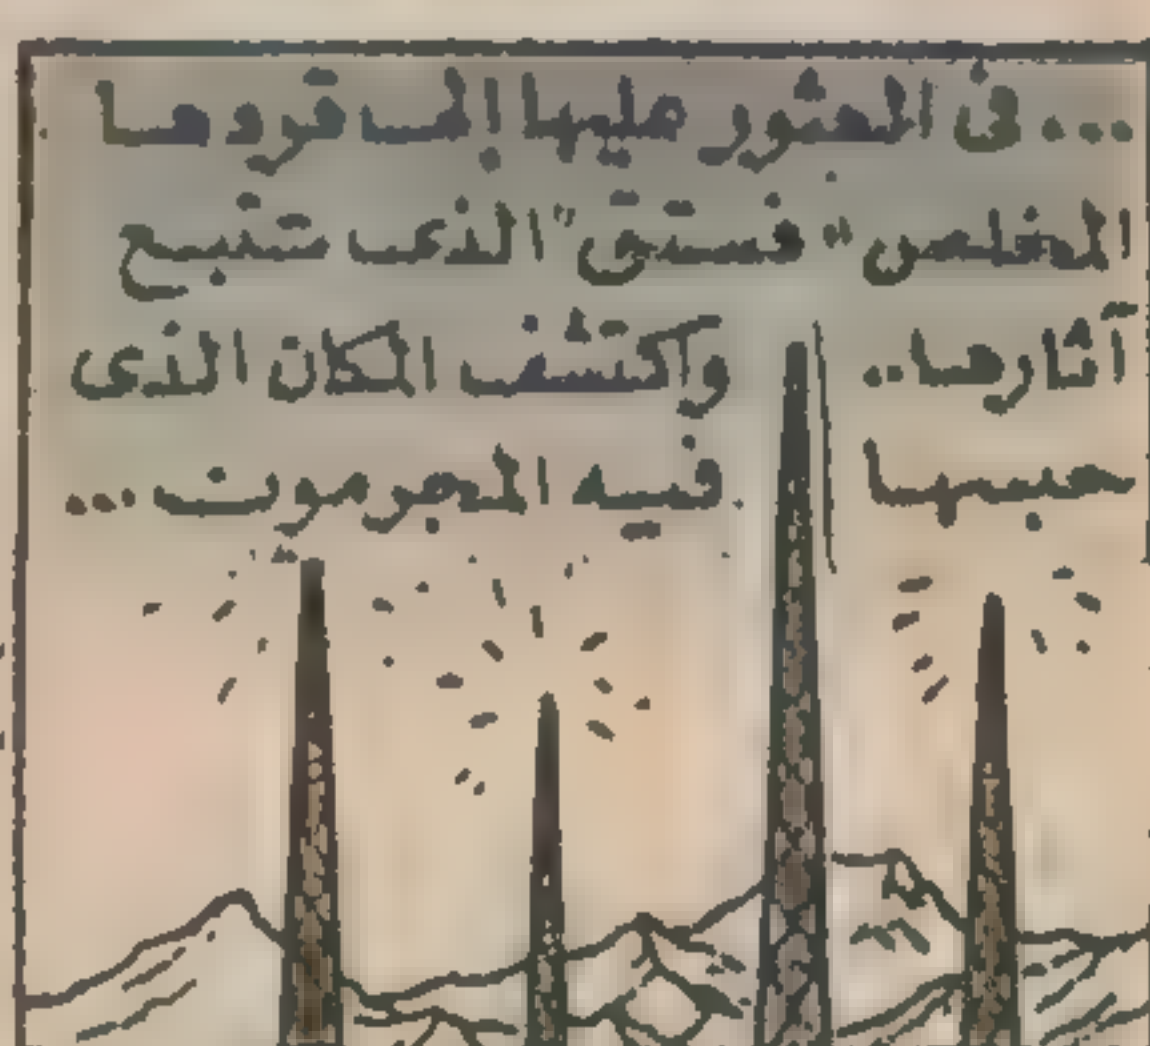 ...فى العثور عليها إلى قردها
المخلص "فستق" الذى تتبع
آثارها.. واكتشف المكان الذى
حبسها فيه المجرمون...